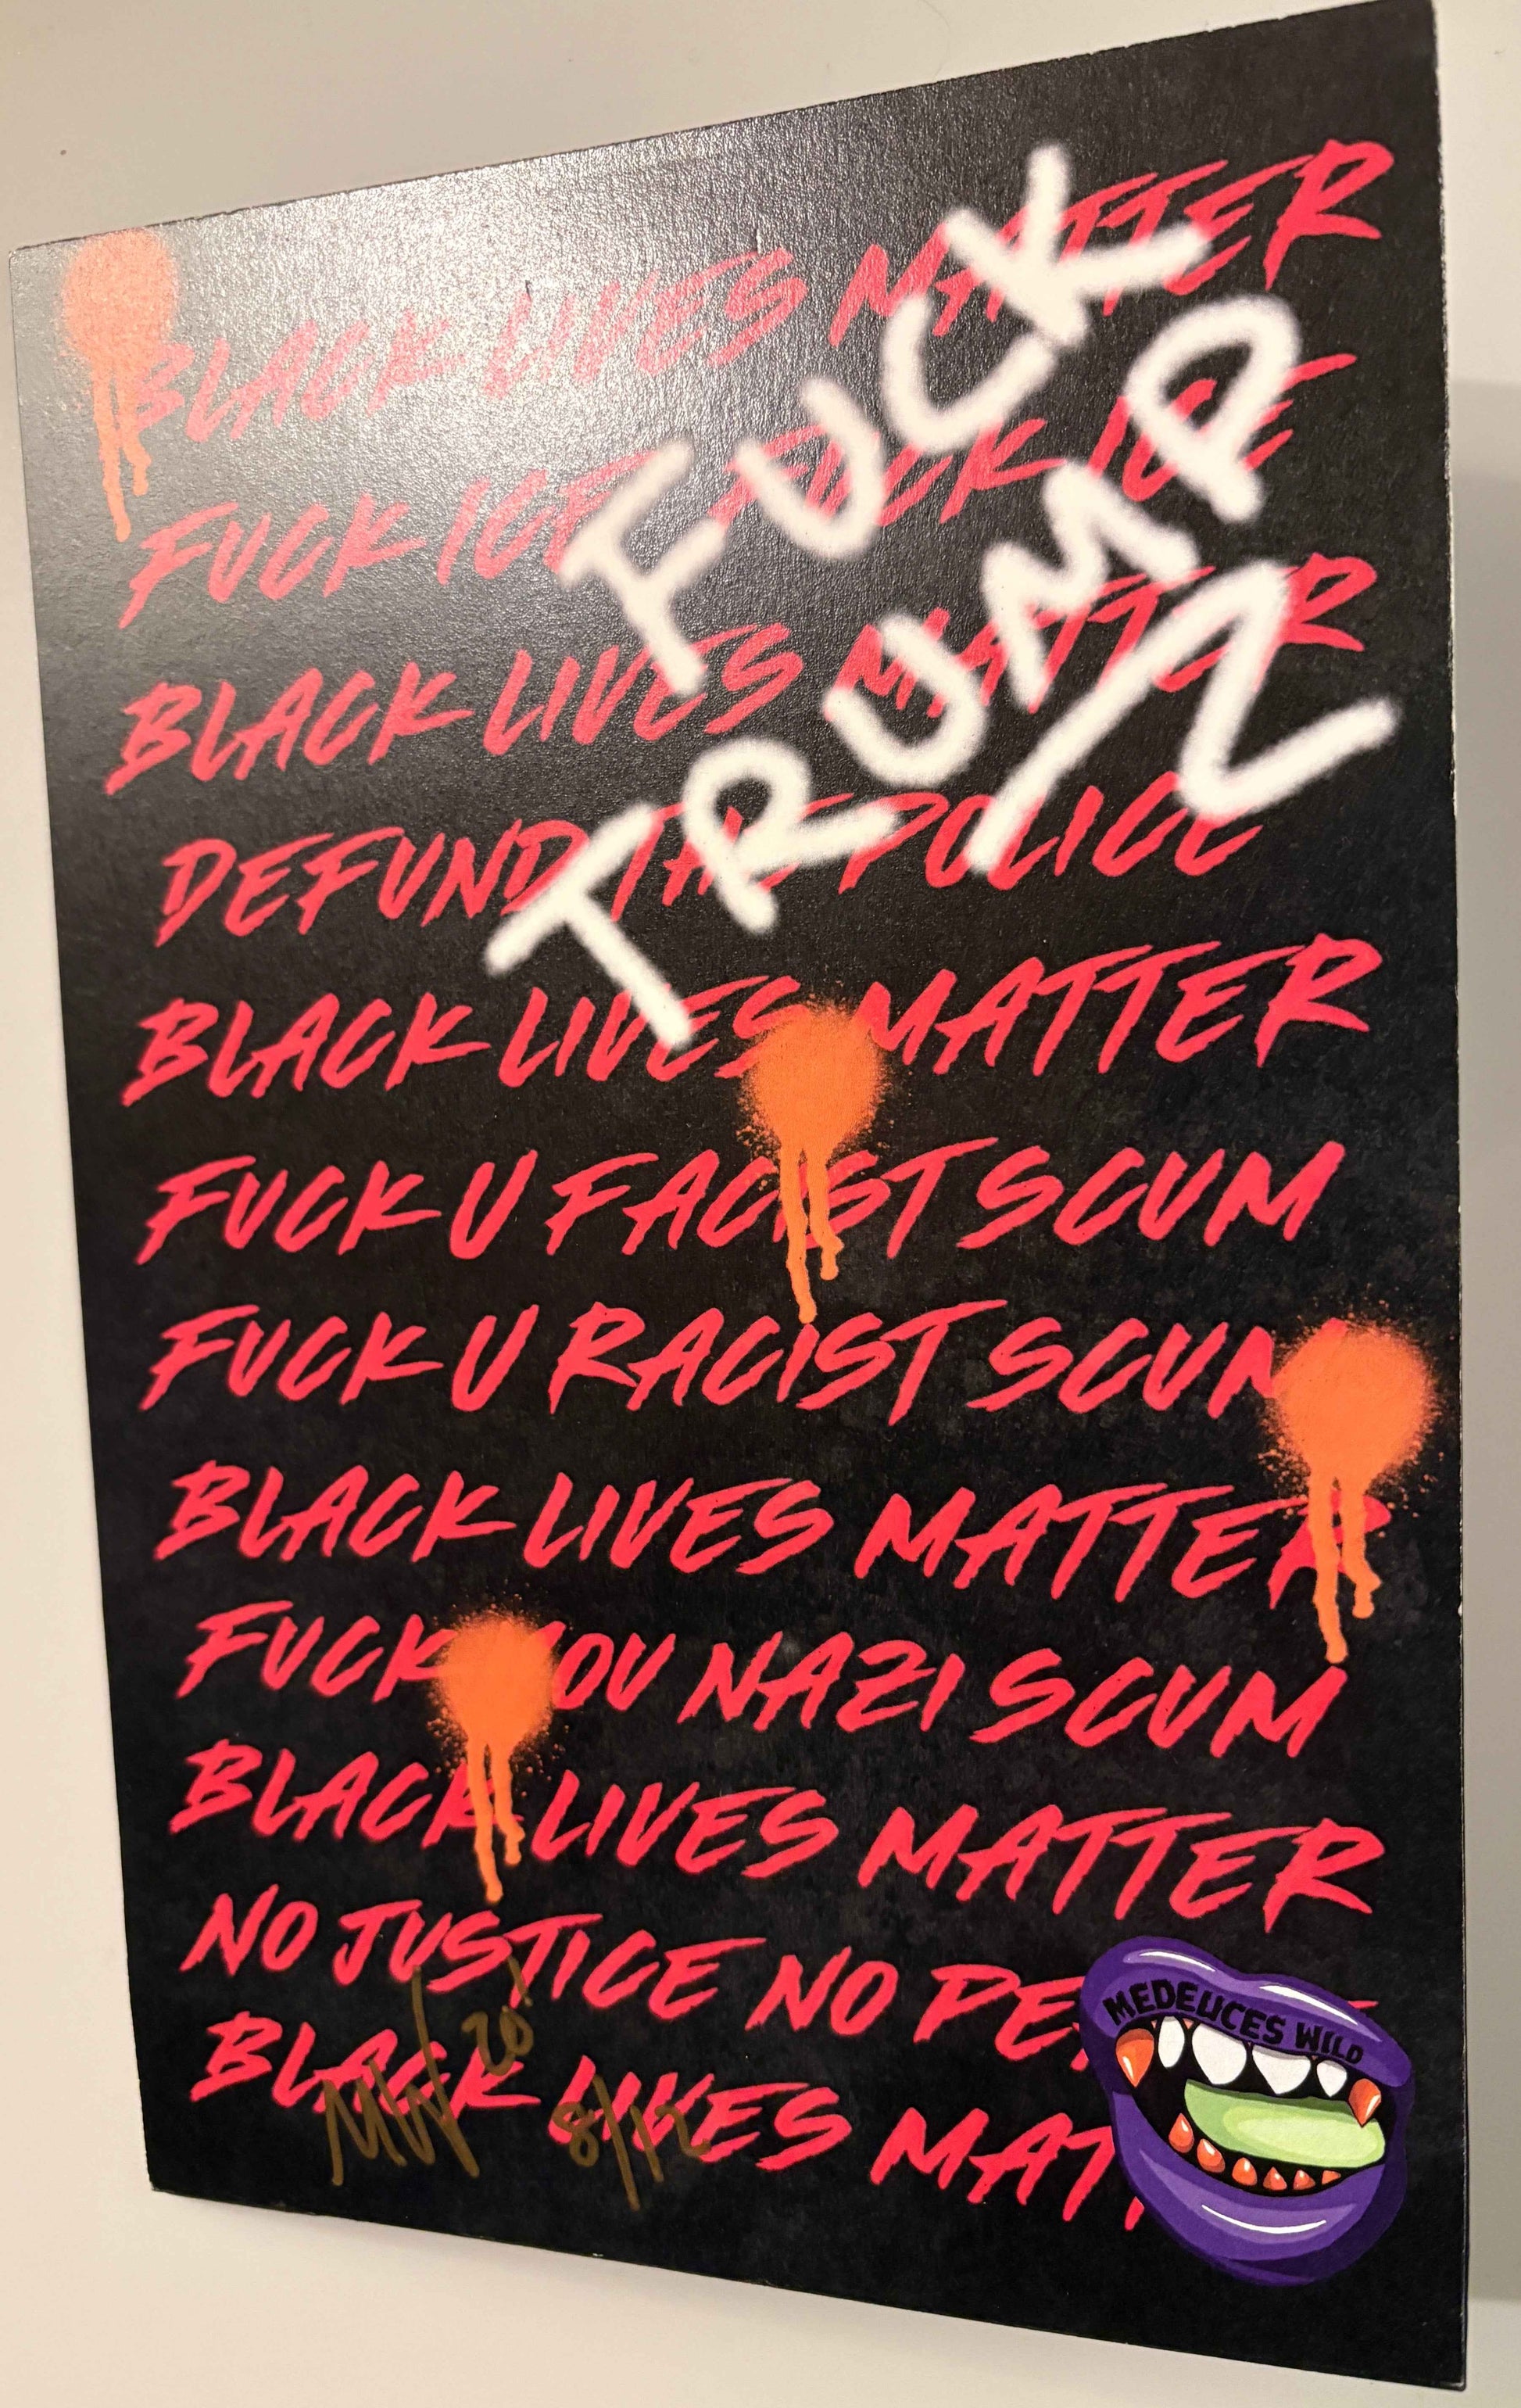 BLACK LIVES MATTER
FUCK ICE FUCK ICE
BLACK LIVES MATTER
DEFUND THE POLICE
BLACK LIVES MATTER
FUCK U FACIST SCUM
FUCK U RACIST SCUM
BLACK LIVES MATTER
FUCK YOU NAZI SCUM
BLACK LIVES MATTER
NO JUSTICE NO PE
BLACK LIVES MAT
FUCK
TRUMP
MEDEUCES WILD
MW 20'
8/12